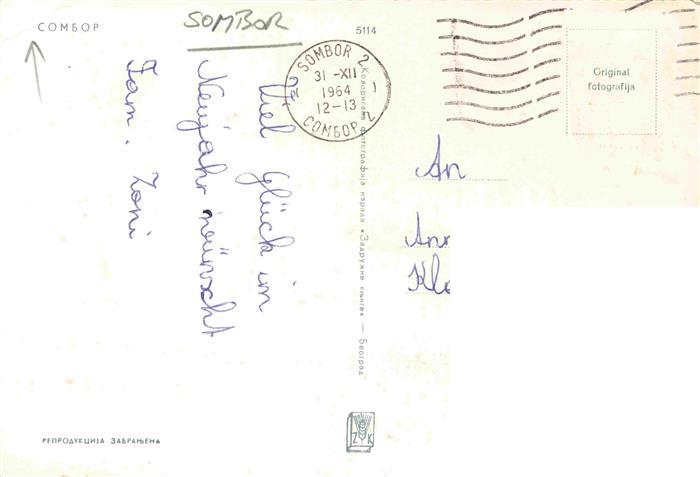 СОМБОР
SOMBOR
5114
SOMBOR 2
31 -XII
1964
12-13
СОМБОР 2
Original
fotografija
Viel Glück im
Neujahr wünscht
Fam. Zoni
An
Ann
Kle
Колорисана фотографија израда «Задружне књиге» — Београд
РЕПРОДУКЦИЈА ЗАБРАЊЕНА
Z K